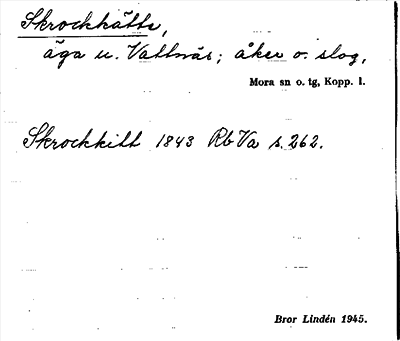 Skrockkätte,
äga u. Vattnäs; åker o. slog,
Mora sn o. tg, Kopp. l.
Skrockkitt 1843 RbVa s. 262.
Bror Lindén 1945.